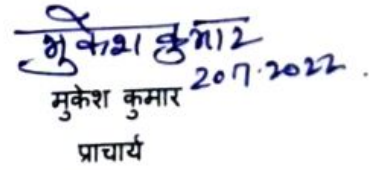 मुकेश कुमार
20.7.2022.
मुकेश कुमार
प्राचार्य